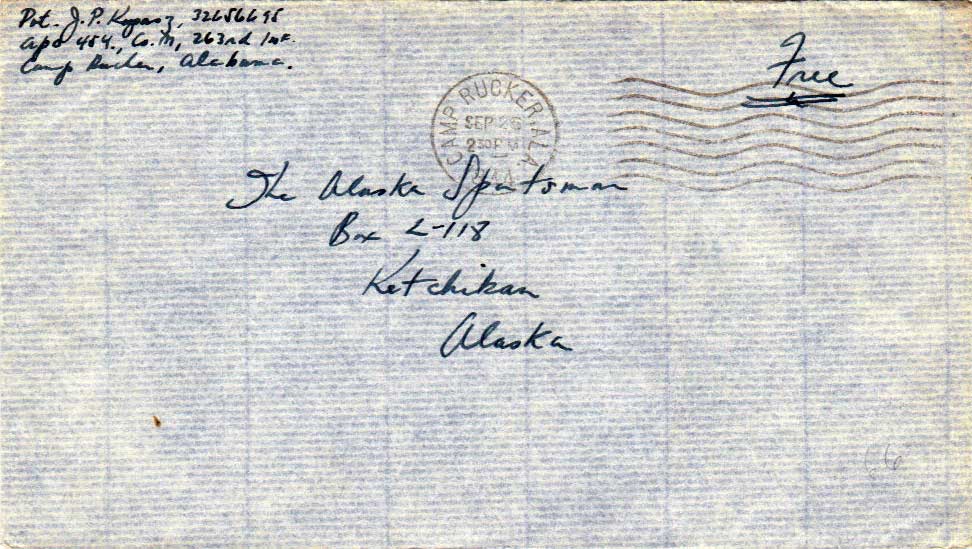 Pvt. J.P. 32656695
APO 454., Co. M, 263rd Inf.
Camp Rucker, Alabama.
Free
CAMP RUCKER, ALA
SEP 26
230 PM
The Alaska Sportsman
Box L-118
Ketchikan
Alaska
66